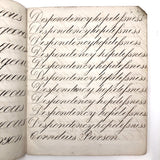 Despondency hopelessness
Despondency hopelessness
Despondency hopelessness
Despondency hopelessness
Despondency hopelessness
Despondency hopelessness
Despondency hopelessness
Despondency hopelessness
Despondency hopelessness
Cornelius Pierson